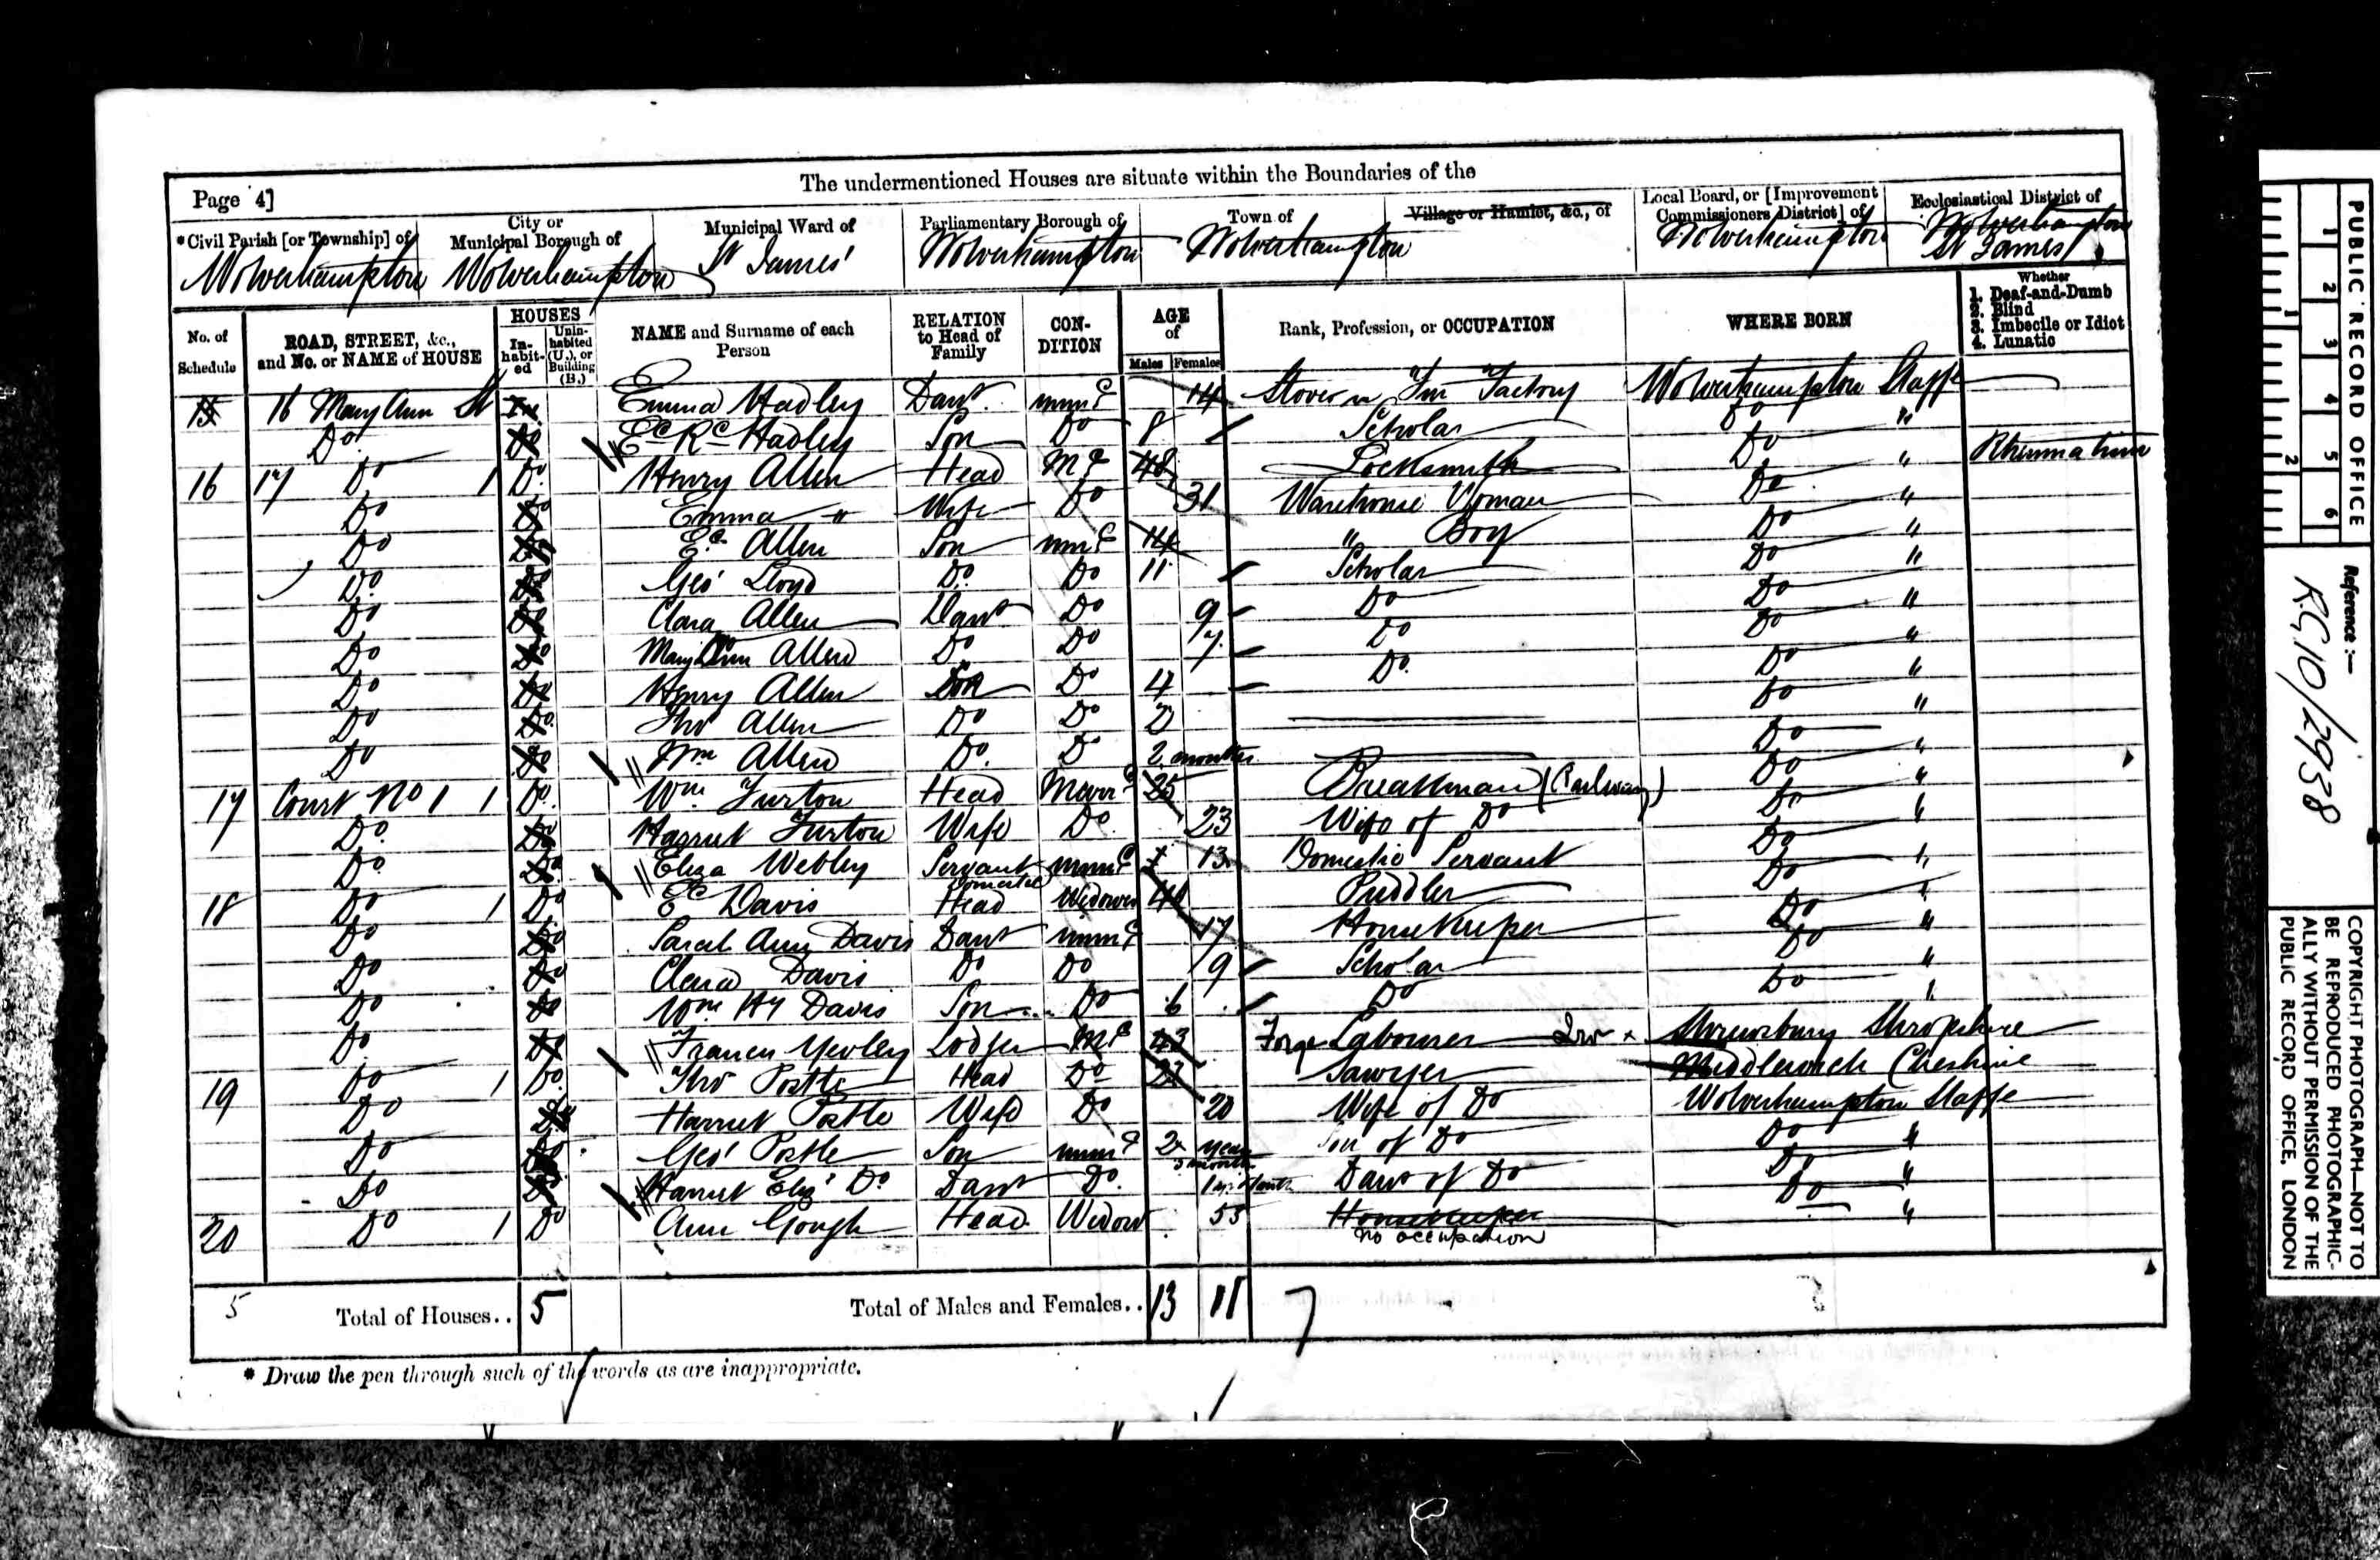 The undermentioned Houses are situate within the Boundaries of the
Page 4]
*Civil Parish [or Township] of
City or Municipal Borough of
Municipal Ward of
Parliamentary Borough of
Town of
Village or Hamlet, &c., of
Local Board, or [Improvement Commissioners District] of
Ecclesiastical District of
Wolverhampton Wolverhampton St James' Wolverhampton Wolverhampton Wolverhampton Wolverhampton St James
No. of Schedule
ROAD, STREET, &c., and No. or NAME of HOUSE
HOUSES
In-habit-ed
Unin-habited (U.), or Building (B.)
NAME and Surname of each Person
RELATION to Head of Family
CON-DITION
AGE of
Males Females
Rank, Profession, or OCCUPATION
WHERE BORN
Whether
1. Deaf-and-Dumb
2. Blind
3. Imbecile or Idiot
4. Lunatic
15 16 Mary Ann St Emma Hadley Daur. unmd 14 Stover in Tin Factory Wolverhampton Staffs
Do Do Ed Rd Hadley Son Do 8 Scholar Do "
16 17 Do 1 Do Henry Allen Head Md 48 Locksmith Do " Rheumatism
Do Do Emma " Wife Do 31 Warehouse Woman Do "
Do Do Ed Allen Son unmd 14 " Boy Do "
Do Do Geo Lloyd Do Do 11 Scholar Do "
Do Do Clara Allen Daur Do 9 Do Do "
Do Do Mary Ann Allen Do Do 7 Do Do "
Do Do Henry Allen Son Do 4 Do "
Do Do Tho Allen Do Do 2 Do "
Do Do Wm Allen Do Do 2 months Do
17 Court No 1 1 Do Wm Turton Head Marrd 25 Breaksman (Railway) Do "
Do Do Harriet Turton Wife Do 23 Wife of Do Do "
Do Do Eliza Webley Servant Domestic unmd 13 Domestic Servant Do "
18 Do 1 Do Ed Davis Head Widower Puddler Do "
Do Do Sarah Ann Davis Daur unmd 17 Housekeeper Do "
Do Do Clara Davis Do Do 9 Scholar Do "
Do Do Wm Hy Davis Son Do 6 Do Do "
Do Do Francis Lodger Md 43 Forge Labourer Shrewsbury Shropshire
19 Do 1 Do Tho Postle Head Do Sawyer Middlewich Cheshire
Do Do Harriet Postle Wife Do 20 Wife of Do Wolverhampton Staffs
Do Do Geo Postle Son unmd 2 years 5 months Son of Do Do "
Do Do Harriet Eliz Do Daur Do 1 month Daur of Do Do "
20 Do 1 Do Ann Gough Head Widow 55 Housekeeper Do "
no occupation
5 Total of Houses.. 5 Total of Males and Females.. 13 11 7
* Draw the pen through such of the words as are inappropriate.
PUBLIC RECORD OFFICE
1 2 3 4 5 6
1 2
Reference :—
RG10/2938
COPYRIGHT PHOTOGRAPH—NOT TO
BE REPRODUCED PHOTOGRAPHIC-
ALLY WITHOUT PERMISSION OF THE
PUBLIC RECORD OFFICE, LONDON